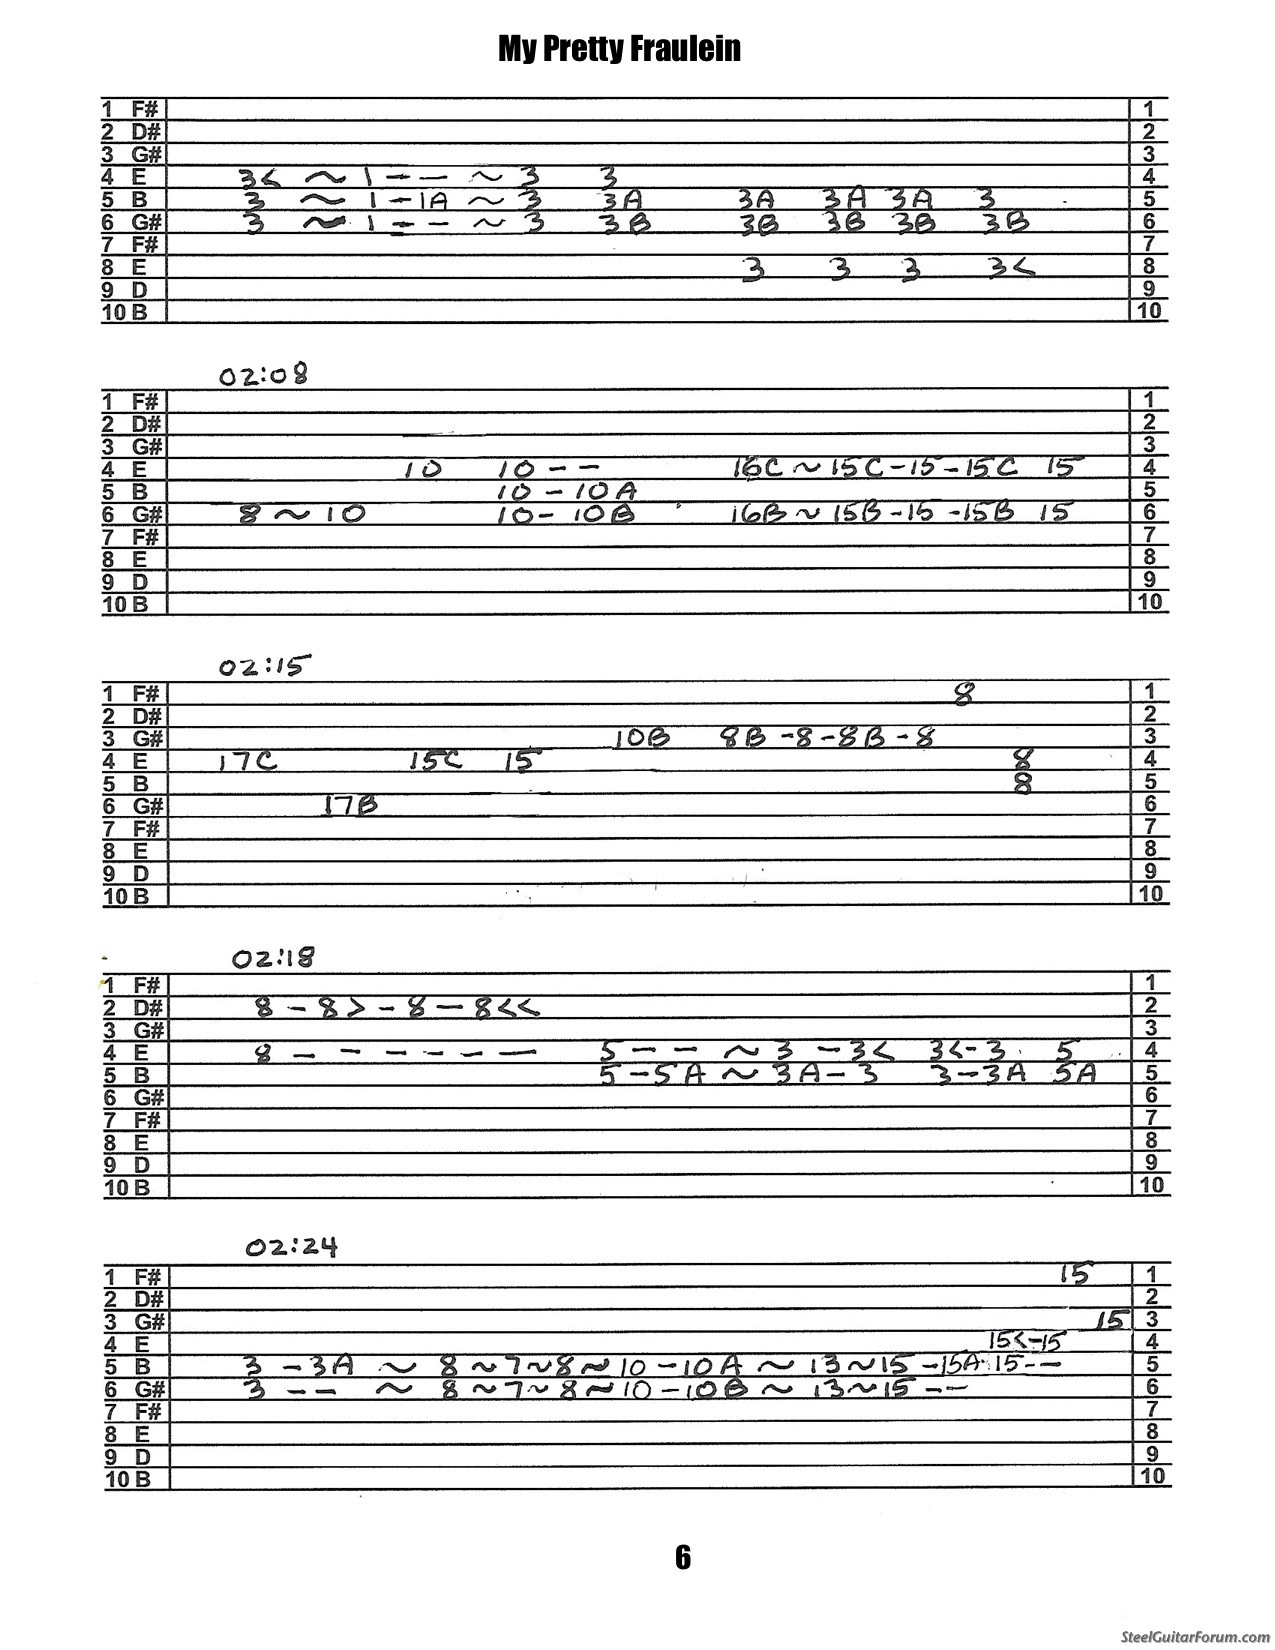 My Pretty Fraulein
1 F# 1
2 D# 2
3 G# 3
4 E 3< ~ 1 - - ~ 3 3 4
5 B 3 ~ 1 - 1A ~ 3 3A 3A 3A 3A 3 5
6 G# 3 ~ 1 - - ~ 3 3B 3B 3B 3B 3B 6
7 F# 7
8 E 3 3 3 3< 8
9 D 9
10 B 10
02:08
1 F# 1
2 D# 2
3 G# 3
4 E 10 10 - - 16C ~ 15C - 15 - 15C 15 4
5 B 10 - 10A 5
6 G# 8 ~ 10 10 - 10B 16B ~ 15B - 15 - 15B 15 6
7 F# 7
8 E 8
9 D 9
10 B 10
02:15
1 F# 8 1
2 D# 2
3 G# 10B 8B - 8 - 8B - 8 3
4 E 17C 15C 15 8 4
5 B 8 5
6 G# 17B 6
7 F# 7
8 E 8
9 D 9
10 B 10
02:18
1 F# 1
2 D# 8 - 8> - 8 - 8<< 2
3 G# 3
4 E 8 - - - - - - 5 - - ~ 3 - 3< 3< - 3 5 4
5 B 5 - 5A ~ 3A - 3 3 - 3A 5A 5
6 G# 6
7 F# 7
8 E 8
9 D 9
10 B 10
02:24
1 F# 15 1
2 D# 2
3 G# 15 3
4 E 15< - 15 4
5 B 3 - 3A ~ 8 ~ 7 ~ 8 ~ 10 - 10A ~ 13 ~ 15 - 15A 15 - - 5
6 G# 3 - - ~ 8 ~ 7 ~ 8 ~ 10 - 10B ~ 13 ~ 15 - - 6
7 F# 7
8 E 8
9 D 9
10 B 10
6
SteelGuitarForum.com